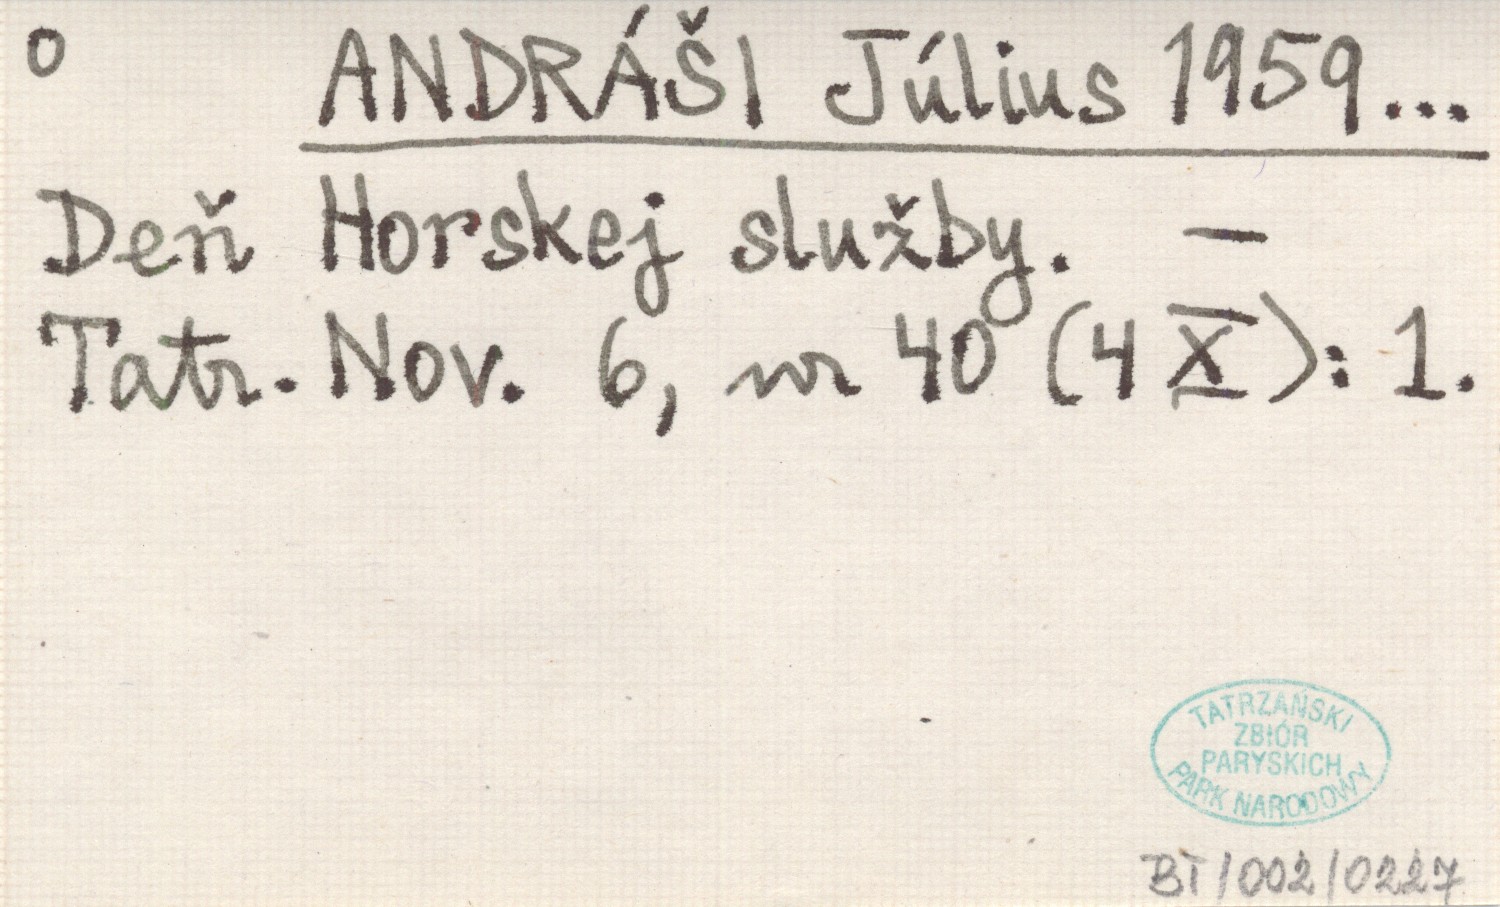 o ANDRÁŠI Július 1959...
Deň Horskej služby. —
Tatr. Nov. 6, nr 40 (4 X): 1.
TATRZAŃSKI
ZBIÓR
PARYSKICH
PARK NARODOWY
BT/002/0227